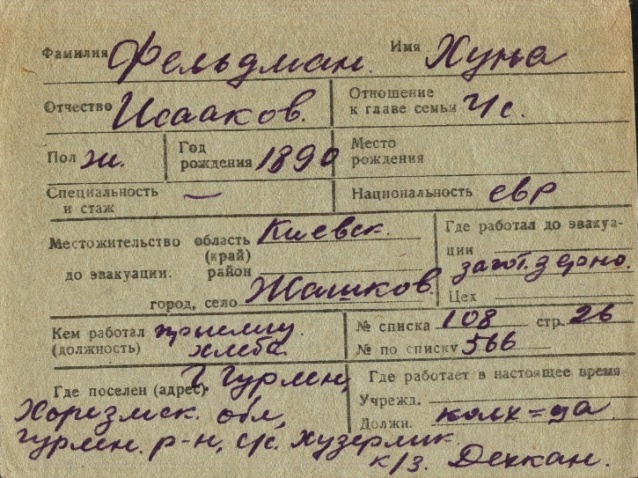 Фамилия Фельдман. Имя Хуня
Отчество Исааков. Отношение к главе семьи Ч/с.
Пол ж. Год рождения 1890 Место рождения
Специальность и стаж — Национальность евр
Местожительство до эвакуации. область (край) Киевск.
район
город, село Жашков.
Где работал до эвакуации загот.зерно.
Цех
Кем работал (должность) приемщ. хлеба.
№ списка 108 стр. 26
№ по списку 566
Где поселен (адрес). г Гурлен,
Хорезмск. обл,
Гурлен. р-н, с/с. Хузерлик.
к/з. Дехкан.
Где работает в настоящее время
Учрежд.
Должн. колх=ца